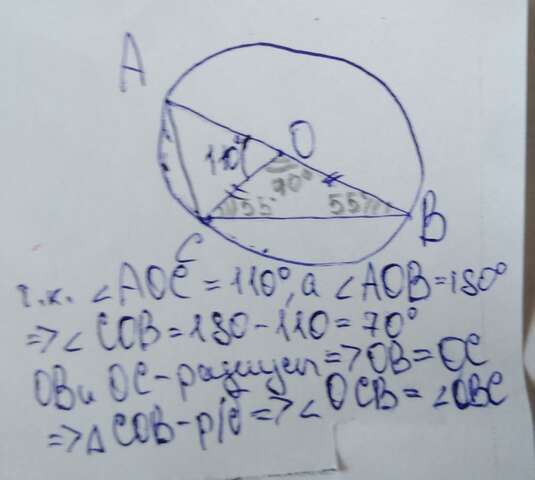 A
O
110°
70°
55
55
B
C
т.к. ∠AOC = 110°, а ∠AOB = 180°
=> ∠COB = 180 - 110 = 70°
OB и OC - радиусы => OB = OC
=> △COB - р/б => ∠OCB = ∠OBC